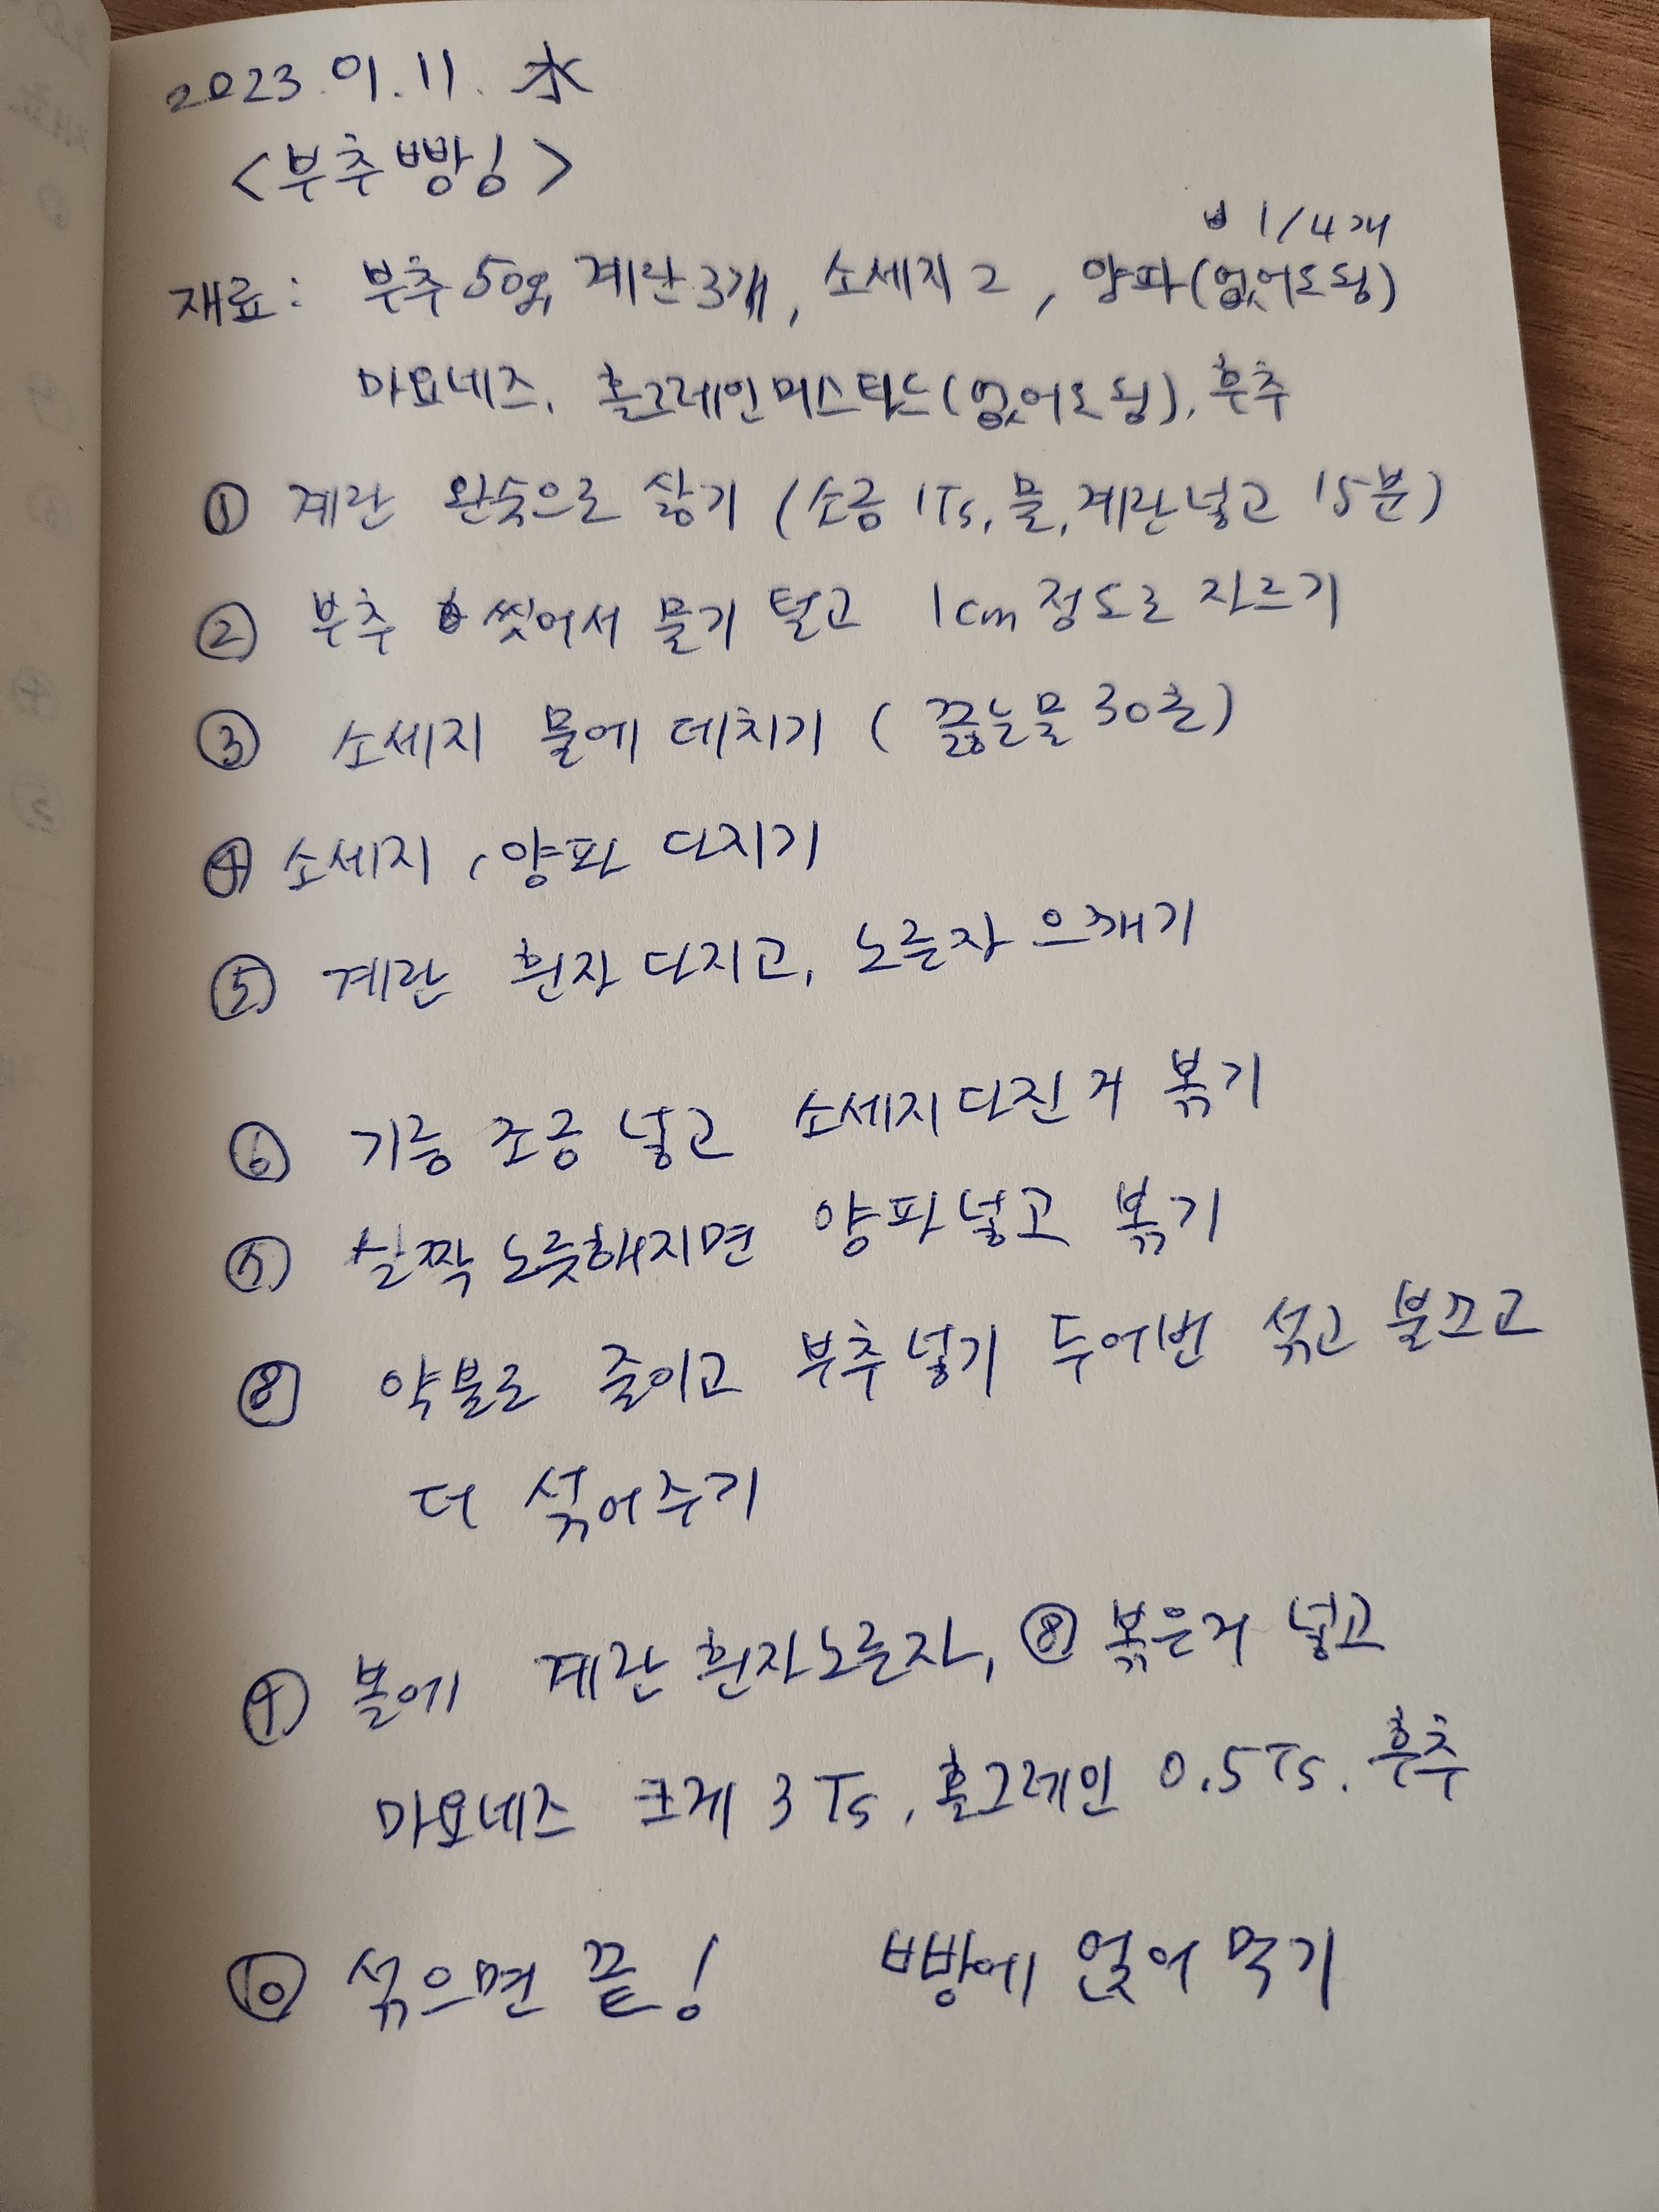 2023.01.11. 水
<부추빵잉>
1/4개
재료: 부추 50g, 계란 3개, 소세지 2, 양파(없어도됨)
마요네즈, 홀그레인머스타드(없어도됨), 후추
① 계란 완숙으로 삶기 (소금 1Ts, 물, 계란넣고 15분)
② 부추 씻어서 물기 털고 1cm 정도로 자르기
③ 소세지 물에 데치기 (끓는물 30초)
④ 소세지, 양파 다지기
⑤ 계란 흰자 다지고, 노른자 으깨기
⑥ 기름 조금 넣고 소세지 다진거 볶기
⑦ 살짝 노릇해지면 양파넣고 볶기
⑧ 약불로 줄이고 부추넣기 두어번 섞고 불끄고
더 섞어주기
⑨ 볼에 계란 흰자노른자, ⑧ 볶은거 넣고
마요네즈 크게 3Ts, 홀그레인 0.5Ts. 후추
⑩ 섞으면 끝! 빵에 얹어 먹기